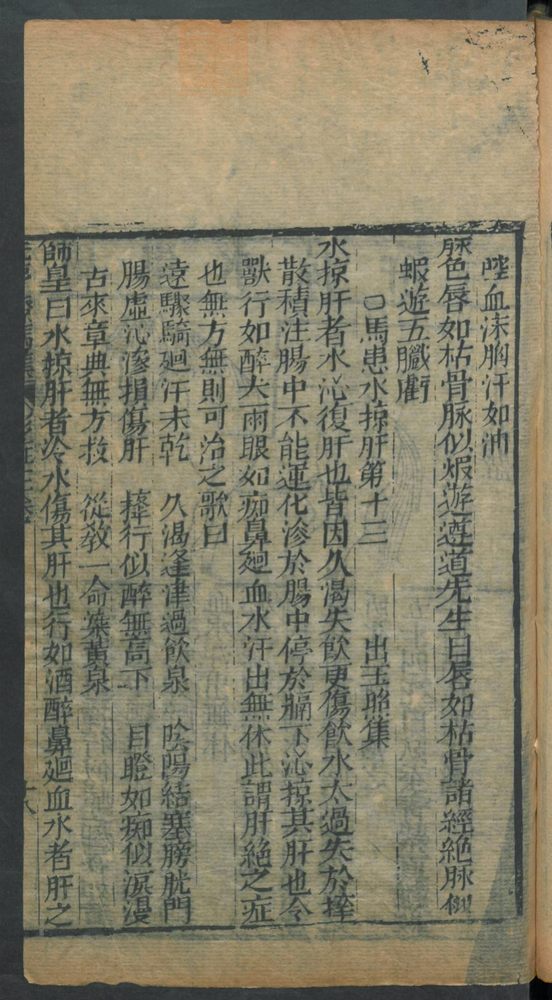 陛血沫胸汗如油
脉色唇如枯骨脉似煆遊遵道先生曰唇如枯骨諸經絶脉似
蝦遊五臟虧
口馬患水掠肝第十三 出王昭集
水掠肝者水沁復肝也皆因久渴失飲更傷飲水太過失於摔
散積注腸中不能運化滲於腸中停於膈下沁掠其肝也令
獸行如醉大雨眼如痴鼻𢌞血水汗出無休此謂肝絶之症
也無方無則可治之歌曰
遠驟騎𢌞汗未乾 久渴逢津過飲泉 陰陽結塞膀胱門
腸虛沁滲損傷肝 摔行似醉無高下 目瞪如痴似淚漫
古來章典無方救 從敎一命染黃泉
師皇曰水掠肝者冷水傷其肝也行如酒醉鼻𢌞血水者肝之
十八